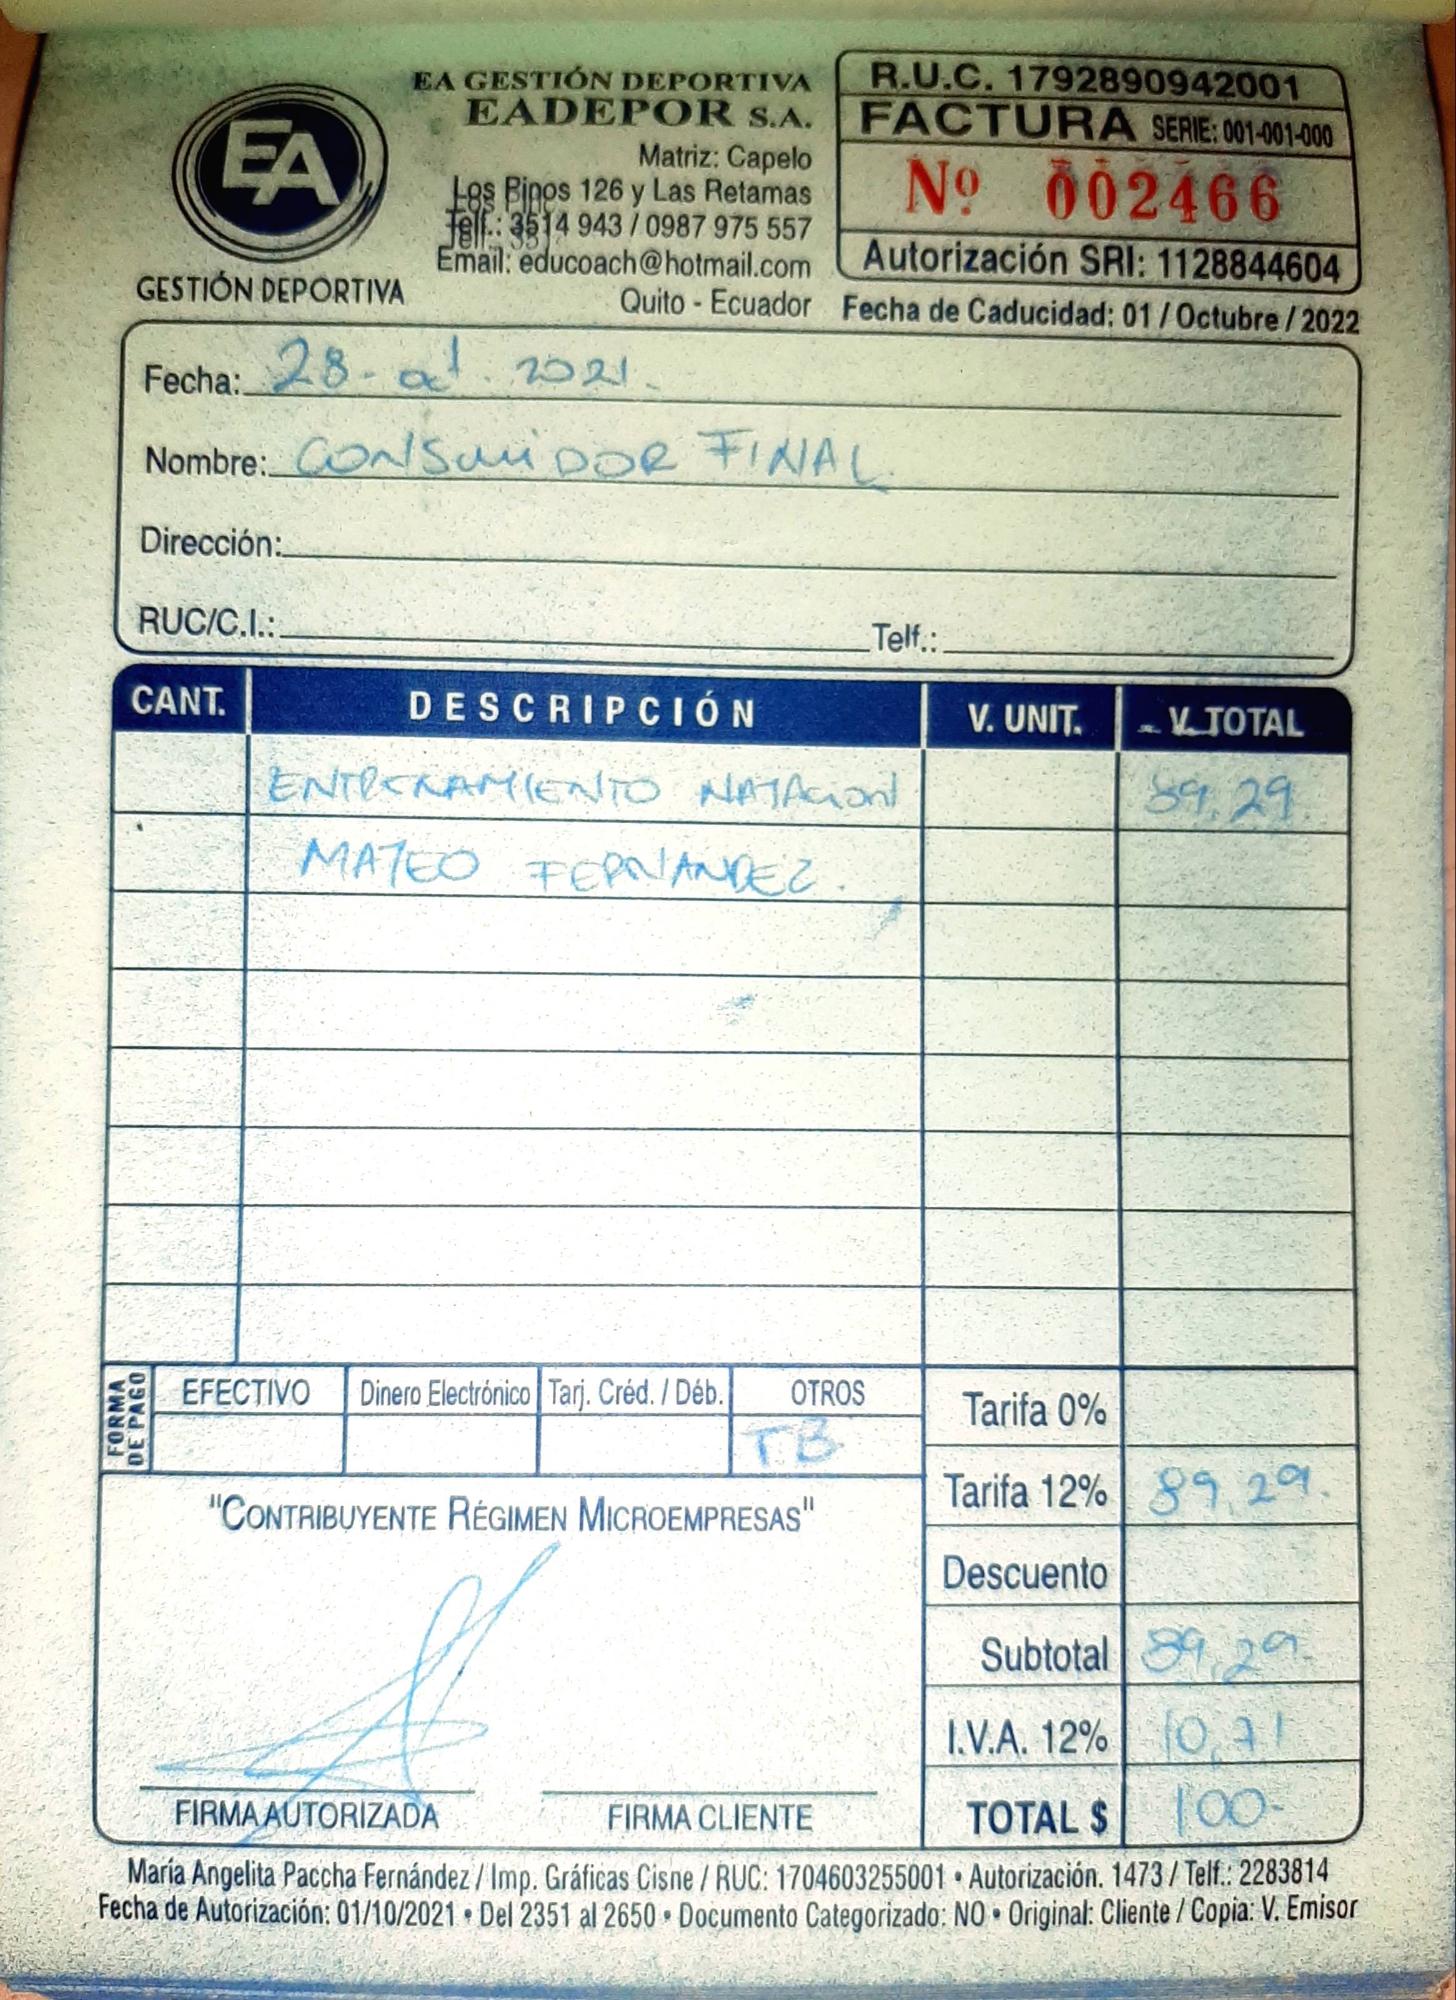 EA
GESTIÓN DEPORTIVA
EA GESTIÓN DEPORTIVA
EADEPOR S.A.
Matriz: Capelo
Los Pinos 126 y Las Retamas
Telf.: 3514 943 / 0987 975 557
Email: educoach@hotmail.com
Quito - Ecuador
R.U.C. 1792890942001
FACTURA SERIE: 001-001-000
Nº 002466
Autorización SRI: 1128844604
Fecha de Caducidad: 01 / Octubre / 2022
Fecha: 28 - oct. 2021.
Nombre: CONSUMIDOR FINAL
Dirección:
RUC/C.I.: Telf.:
CANT. DESCRIPCIÓN V. UNIT. V. TOTAL
ENTRENAMIENTO NATACION 89,29
MATEO FERNANDEZ.
FORMA DE PAGO
EFECTIVO Dinero Electrónico Tarj. Créd. / Déb. OTROS
TB
Tarifa 0%
Tarifa 12% 89,29.
Descuento
Subtotal 89,29.
I.V.A. 12% 10,71
TOTAL $ 100-
"CONTRIBUYENTE RÉGIMEN MICROEMPRESAS"
FIRMA AUTORIZADA FIRMA CLIENTE
María Angelita Paccha Fernández / Imp. Gráficas Cisne / RUC: 1704603255001 • Autorización. 1473 / Telf.: 2283814
Fecha de Autorización: 01/10/2021 • Del 2351 al 2650 • Documento Categorizado: NO • Original: Cliente / Copia: V. Emisor